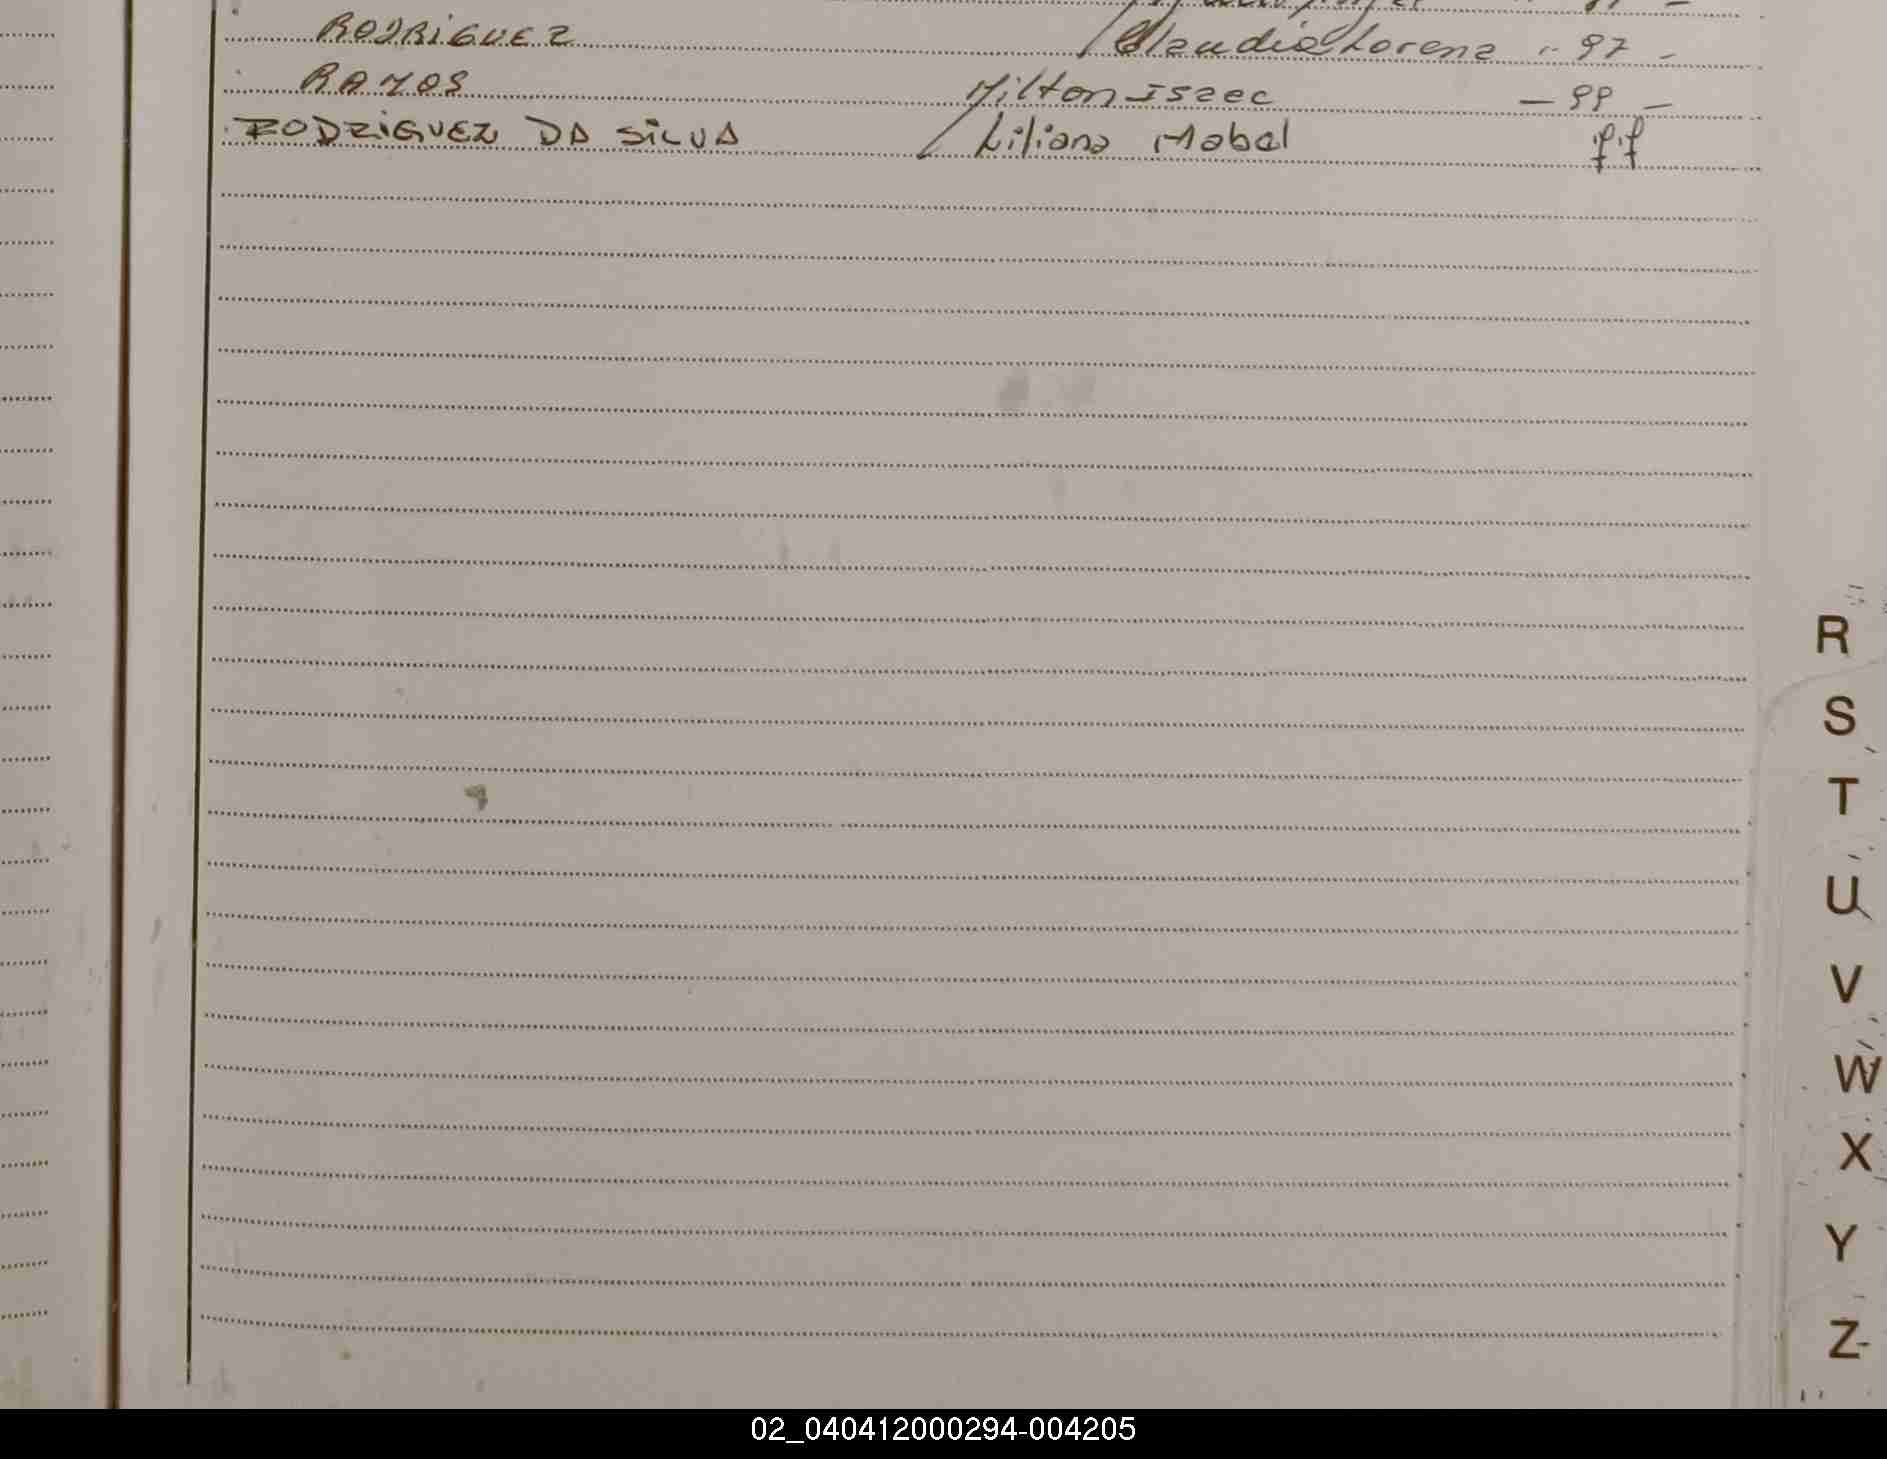 RODRiGUEZ Claudia Lorena " 97 -
RAMOS Milton isaac - 99 -
RODRiGUEZ DA SiLVA Liliana Mabel
R
S
T
U
V
W
X
Y
Z
02_040412000294-004205